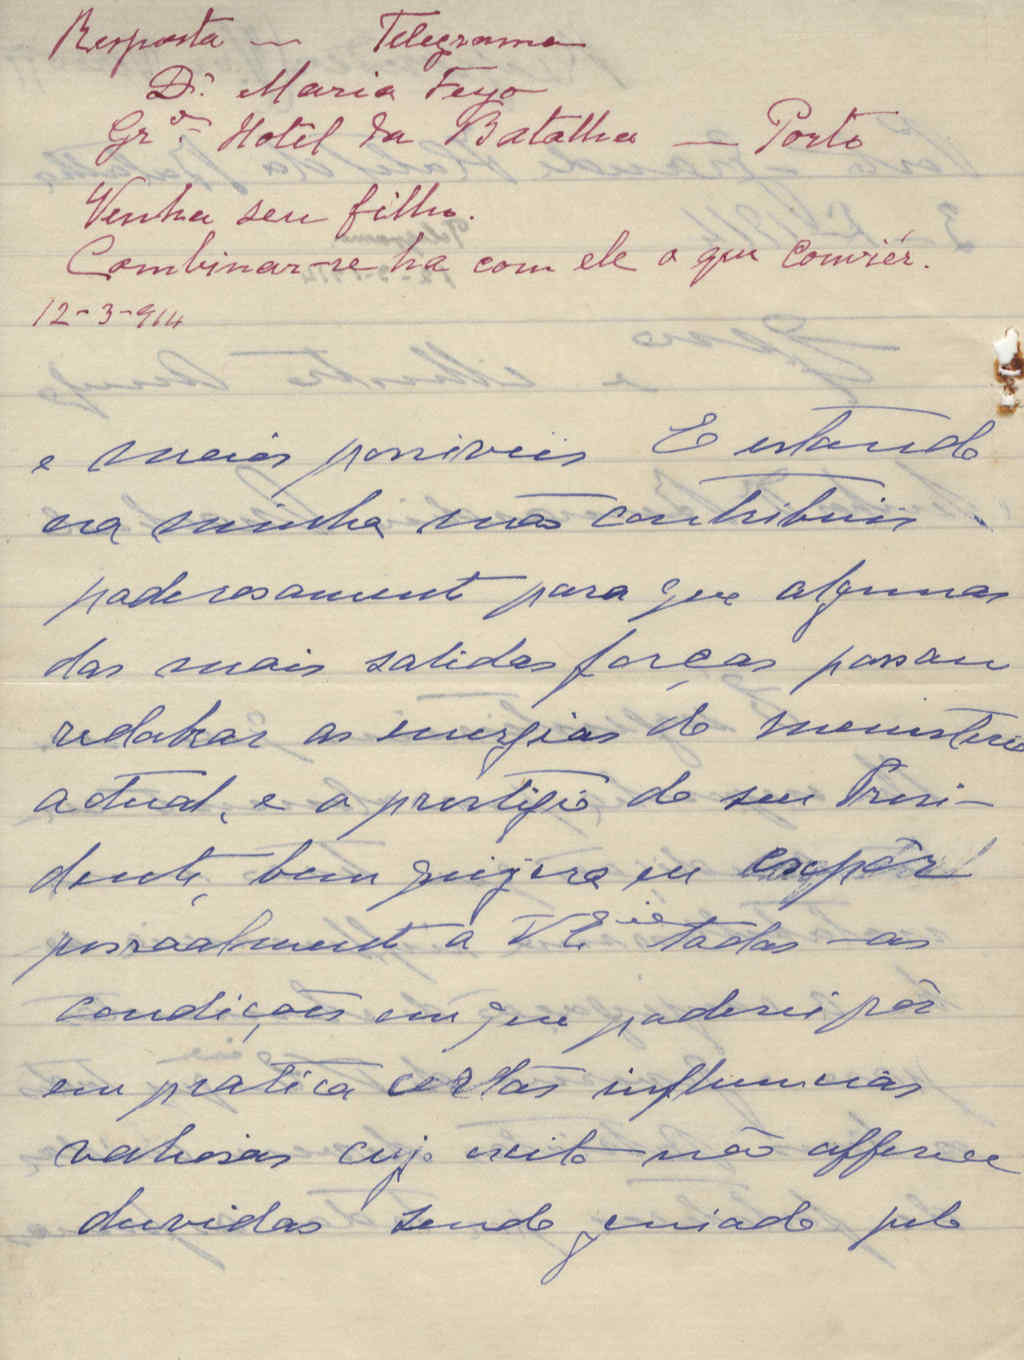 Resposta — Telegrama
D.ª Maria Feyo
Gr.de Hotel da Batalha — Porto
Venha seu filho.
Combinar-se ha com ele o que conviér.
12-3-914
e meios possiveis E estando
na minha mão contribuir
poderosamente para que algumas
das mais solidas forças possam
redobrar as energias do menisterio
actual, e o prestigio do seu Presi-
dente, bem quizera eu expôr
pessoalmente a V Ex.cia todas as
condições em que poderei pôr
em pratica certas influencias
valiosas cujo exito não offerece
duvidas sendo guiado pelo